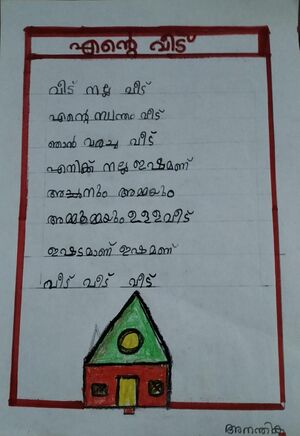 എന്റെ വീട്
വീട് നല്ല വീട്
എന്റെ സ്വന്തം വീട്
ഞാൻ വരച്ച വീട്
എനിക്ക് നല്ല ഇഷമണ്
അച്ഛനും അമ്മയും
അമ്മമ്മയും ഉള്ളവീട്
ഇഷടമാണ് ഇഷമണ്
വീട് വീട് വീട്
അനന്തിക